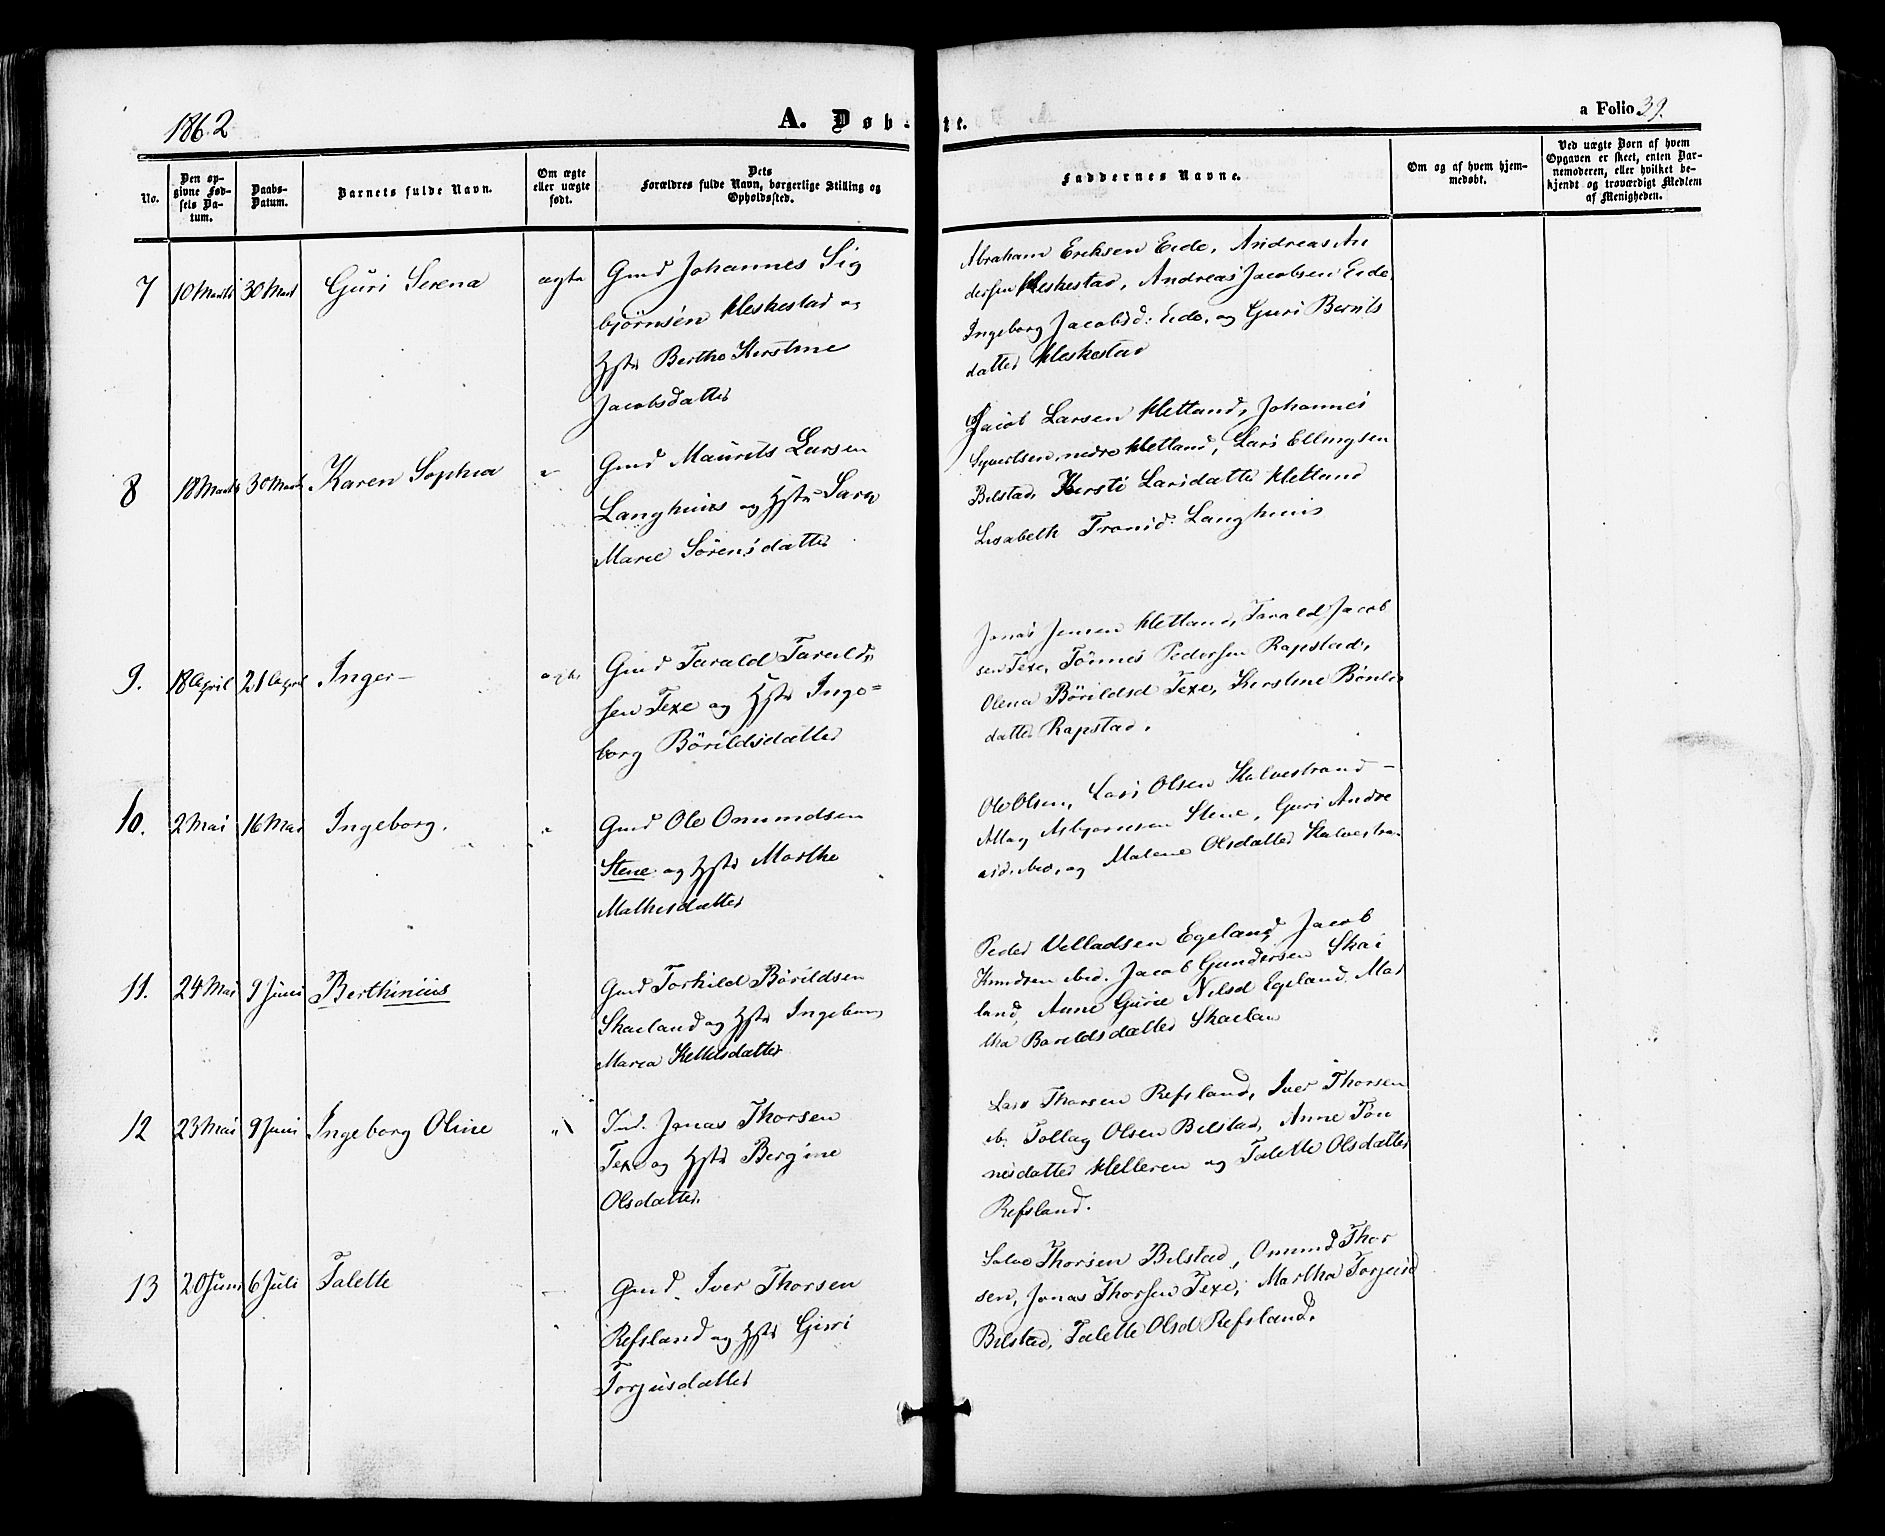 1862
A. Døb-
te.
a Folio 39.
No.
Den op-
givne Fød-
sels Da-
tum.
Daabs-
Datum.
Barnets fulde Navn.
Om ægte
eller uægte
født.
Dets
Forældres fulde Navn, borgerlige Stilling og
Opholdssted.
Faddernes Navne.
Om og af hvem hjem-
medøbt.
Ved uægte Born af hvem
Opgaven er skeet, enten Bar-
nemoderen, eller hvilket be-
kjendt og troværdigt Medlem
af Menigheden.
7 10 Marts 30 Mart Guri Serena ægte
Gmd Johannes Sig
bjørnsen Heskestad og
Hstr Berthe Kirstine
Jacobsdatter
Abraham Eriksen Eide, Andreas An
dersen Heskestad, Andreas Jacobsen Eide,
Ingeborg Jacobsd: Eide, og Guri Bernts
datter Heskestad
8 18 Marts 30 Marts Karen Sophia "
Gmd Maurits Larsen
Langhuus og Hstr Sara
Marie Sörensdatter
Jacob Larsen Hetland, Johannes
Syvertsen nedre Hetland, Lars Ellingsen
Bilstad, Kirsti Larsdatter Hetland
Lisabeth Tronsd. Langhuus
9. 18 April 21 April Inger- ægte
Gmd Tarald Tarald-
sen Texe og Hstr Inge=
borg Börildsdatter
Jonas Jensen Hetland, Tarald Jacob
sen Texe, Tönnes Pedersen Rapstad,
Olena Börildsd Texe, Kirstine
datter Rapstad.
10. 2 Mai 16 Mai Ingeborg. "
Gmd Ole Omundsen
Stene og Hstr Marthe
Mathisdatter
Ole Olsen, Lars Olsen Stalvestrand-
Atlag Asbjørnsen Stene, Guri Andre
asd. ibid, og Malene Olsdatter
11. 24 Mai 9 Juni Berthinius
Gmd Torkild Börildsen
Skaeland og Hstr Ingeborg
Maria Ketilsdatter
Peder Velladsen Egeland, Jacob
Knudsen ibid. Jacob Gundersen Skai
land, Anne Gurie Nilsd Egeland, Mar
tha Barildsdatter Skaelan
12 23 Mai 9 Juni Ingeborg Oline "
Ind. Jonas Thorsen
Texe og Hstr Bergine
Olsdatter.
Lars Thorsen Refsland, Iver Thorsen
ib. Tollag Olsen Bilstad, Anne Tön
nesdatter Helleren og Talette Olsdatter
Refsland.
13 20 Juni 6 Juli Talette
Gmd. Iver Thorsen
Refsland og Hstr Guri
Torjusdatter
Salve Thorsen Bilstad, Omund Thor
sen, Jonas Thorsen Texe, Martha Torjusd
Bilstad, Talette Olsd Refsland.